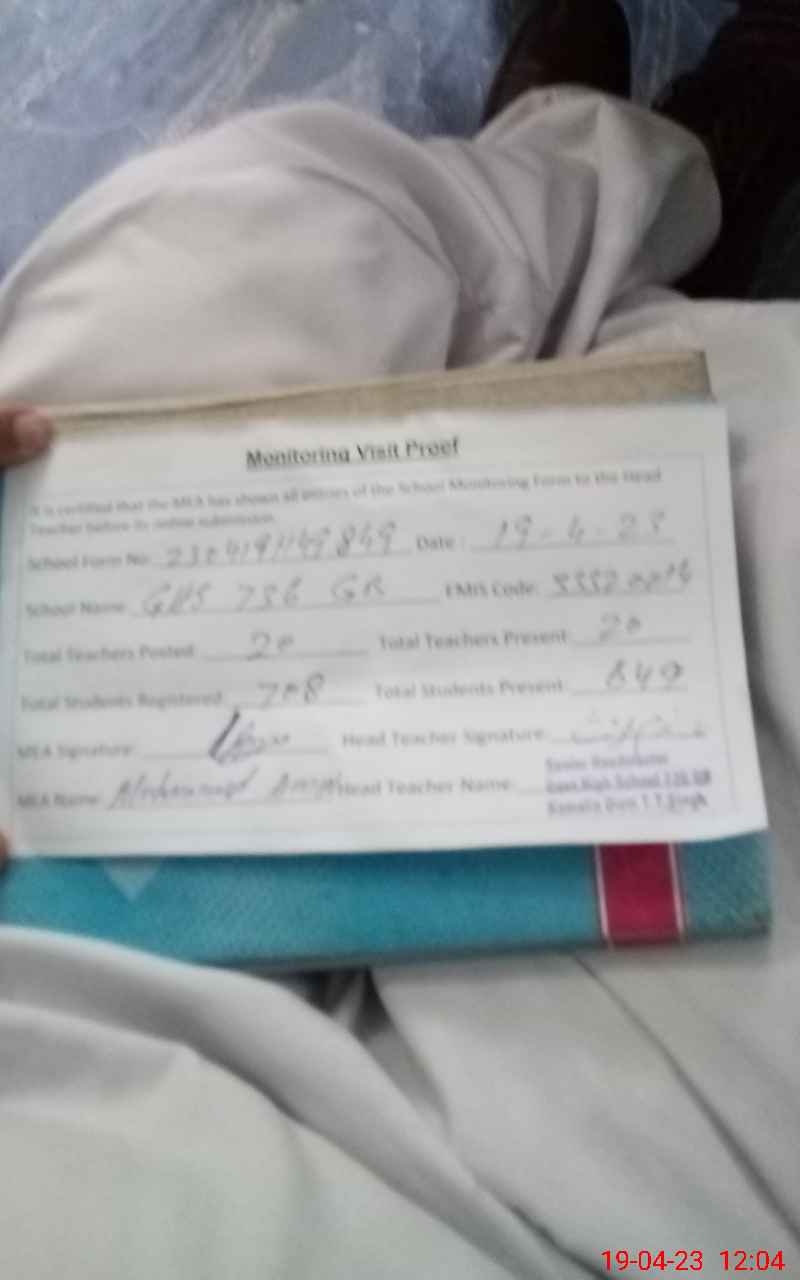 Monitoring Visit Proof
It is certified that the MEA has shown all entries of the School Monitoring Form to the Head
Teacher before its online submission.
School Form No: 230419149849 Date: 19-4-23
School Name: GHS 756 GB EMIS Code:
Total Teachers Posted: 20 Total Teachers Present: 20
Total Students Registered: 708 Total Students Present: 649
MEA Signature: Head Teacher Signature:
MEA Name: Head Teacher Name:
Senior Headmaster
Govt. High School GB
Kamalia Distt T.T.Singh
19-04-23 12:04